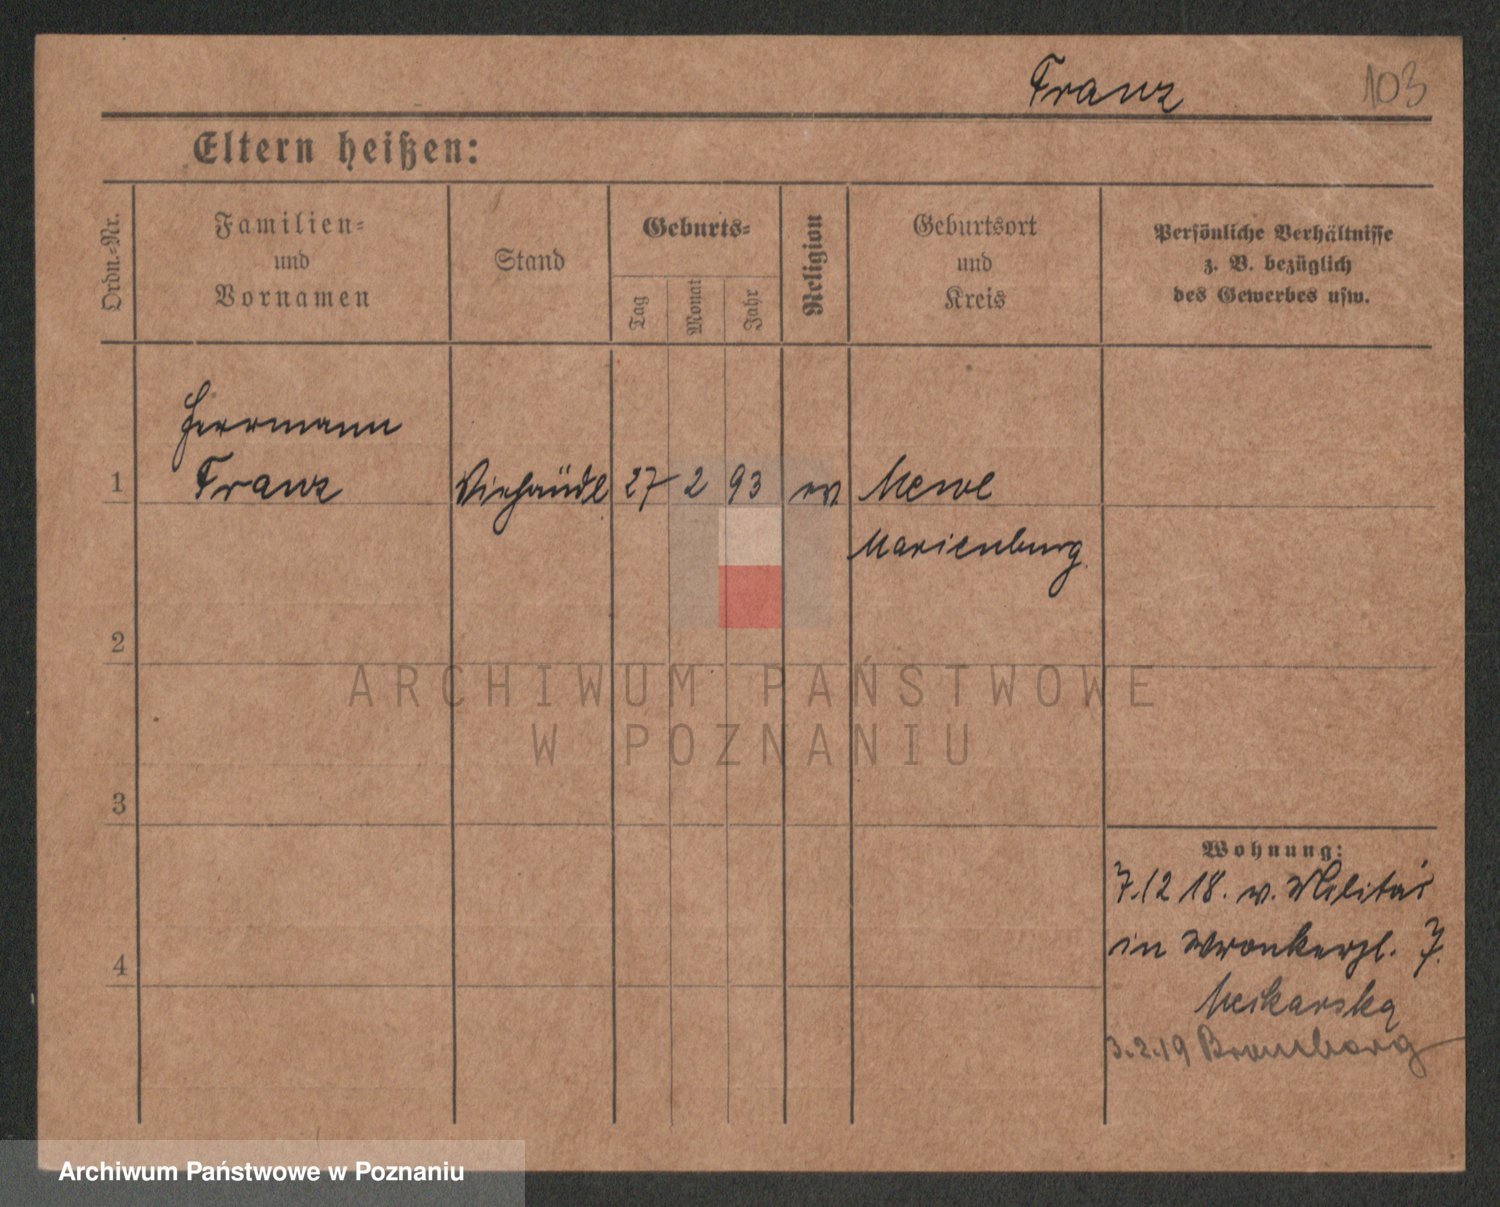 Franz 103
Eltern heißen:
Ordn.-Nr.
Familien-
und
Vornamen
Stand
Geburts-
Tag
Monat
Jahr
Religion
Geburtsort
und
Kreis
Persönliche Verhältnisse
z. B. bezüglich
des Gewerbes usw.
Herrmann
1 Franz Viehändl 27 2 93 ev Mewe
Marienburg
2
ARCHIWUM PAŃSTWOWE
W POZNANIU
3
Wohnung:
7.12 18. v. Militär
in Wronkerpl. 7.
4
3.2.19 Bromberg
Archiwum Państwowe w Poznaniu